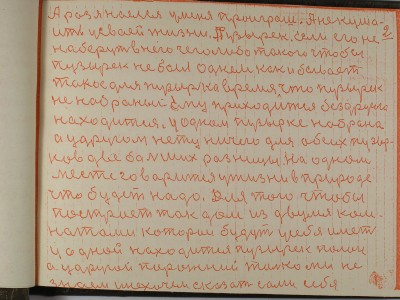 А раз я нашелся у меня проиграш. А не
ить цевай жизни. Пузырек, если его не
наберут в него чего либо такого чтобы
пузырек не был одном как и бывает
такое для пузырька время, что пузырек
не набраной ему приходится без друга
находится, у одном пузырке набрана
а у другом нету ничего для обеих пузыр-
ков две больших разницы на одном
месте говарится у жизни в природе
что будет надо. Для того чтобы
построеть так дом из двумя ком-
натами которои будут у себя имет
у одной находится пузырек полон
а у другой порожний только ми не
знаем и не хочем сказать сами себя